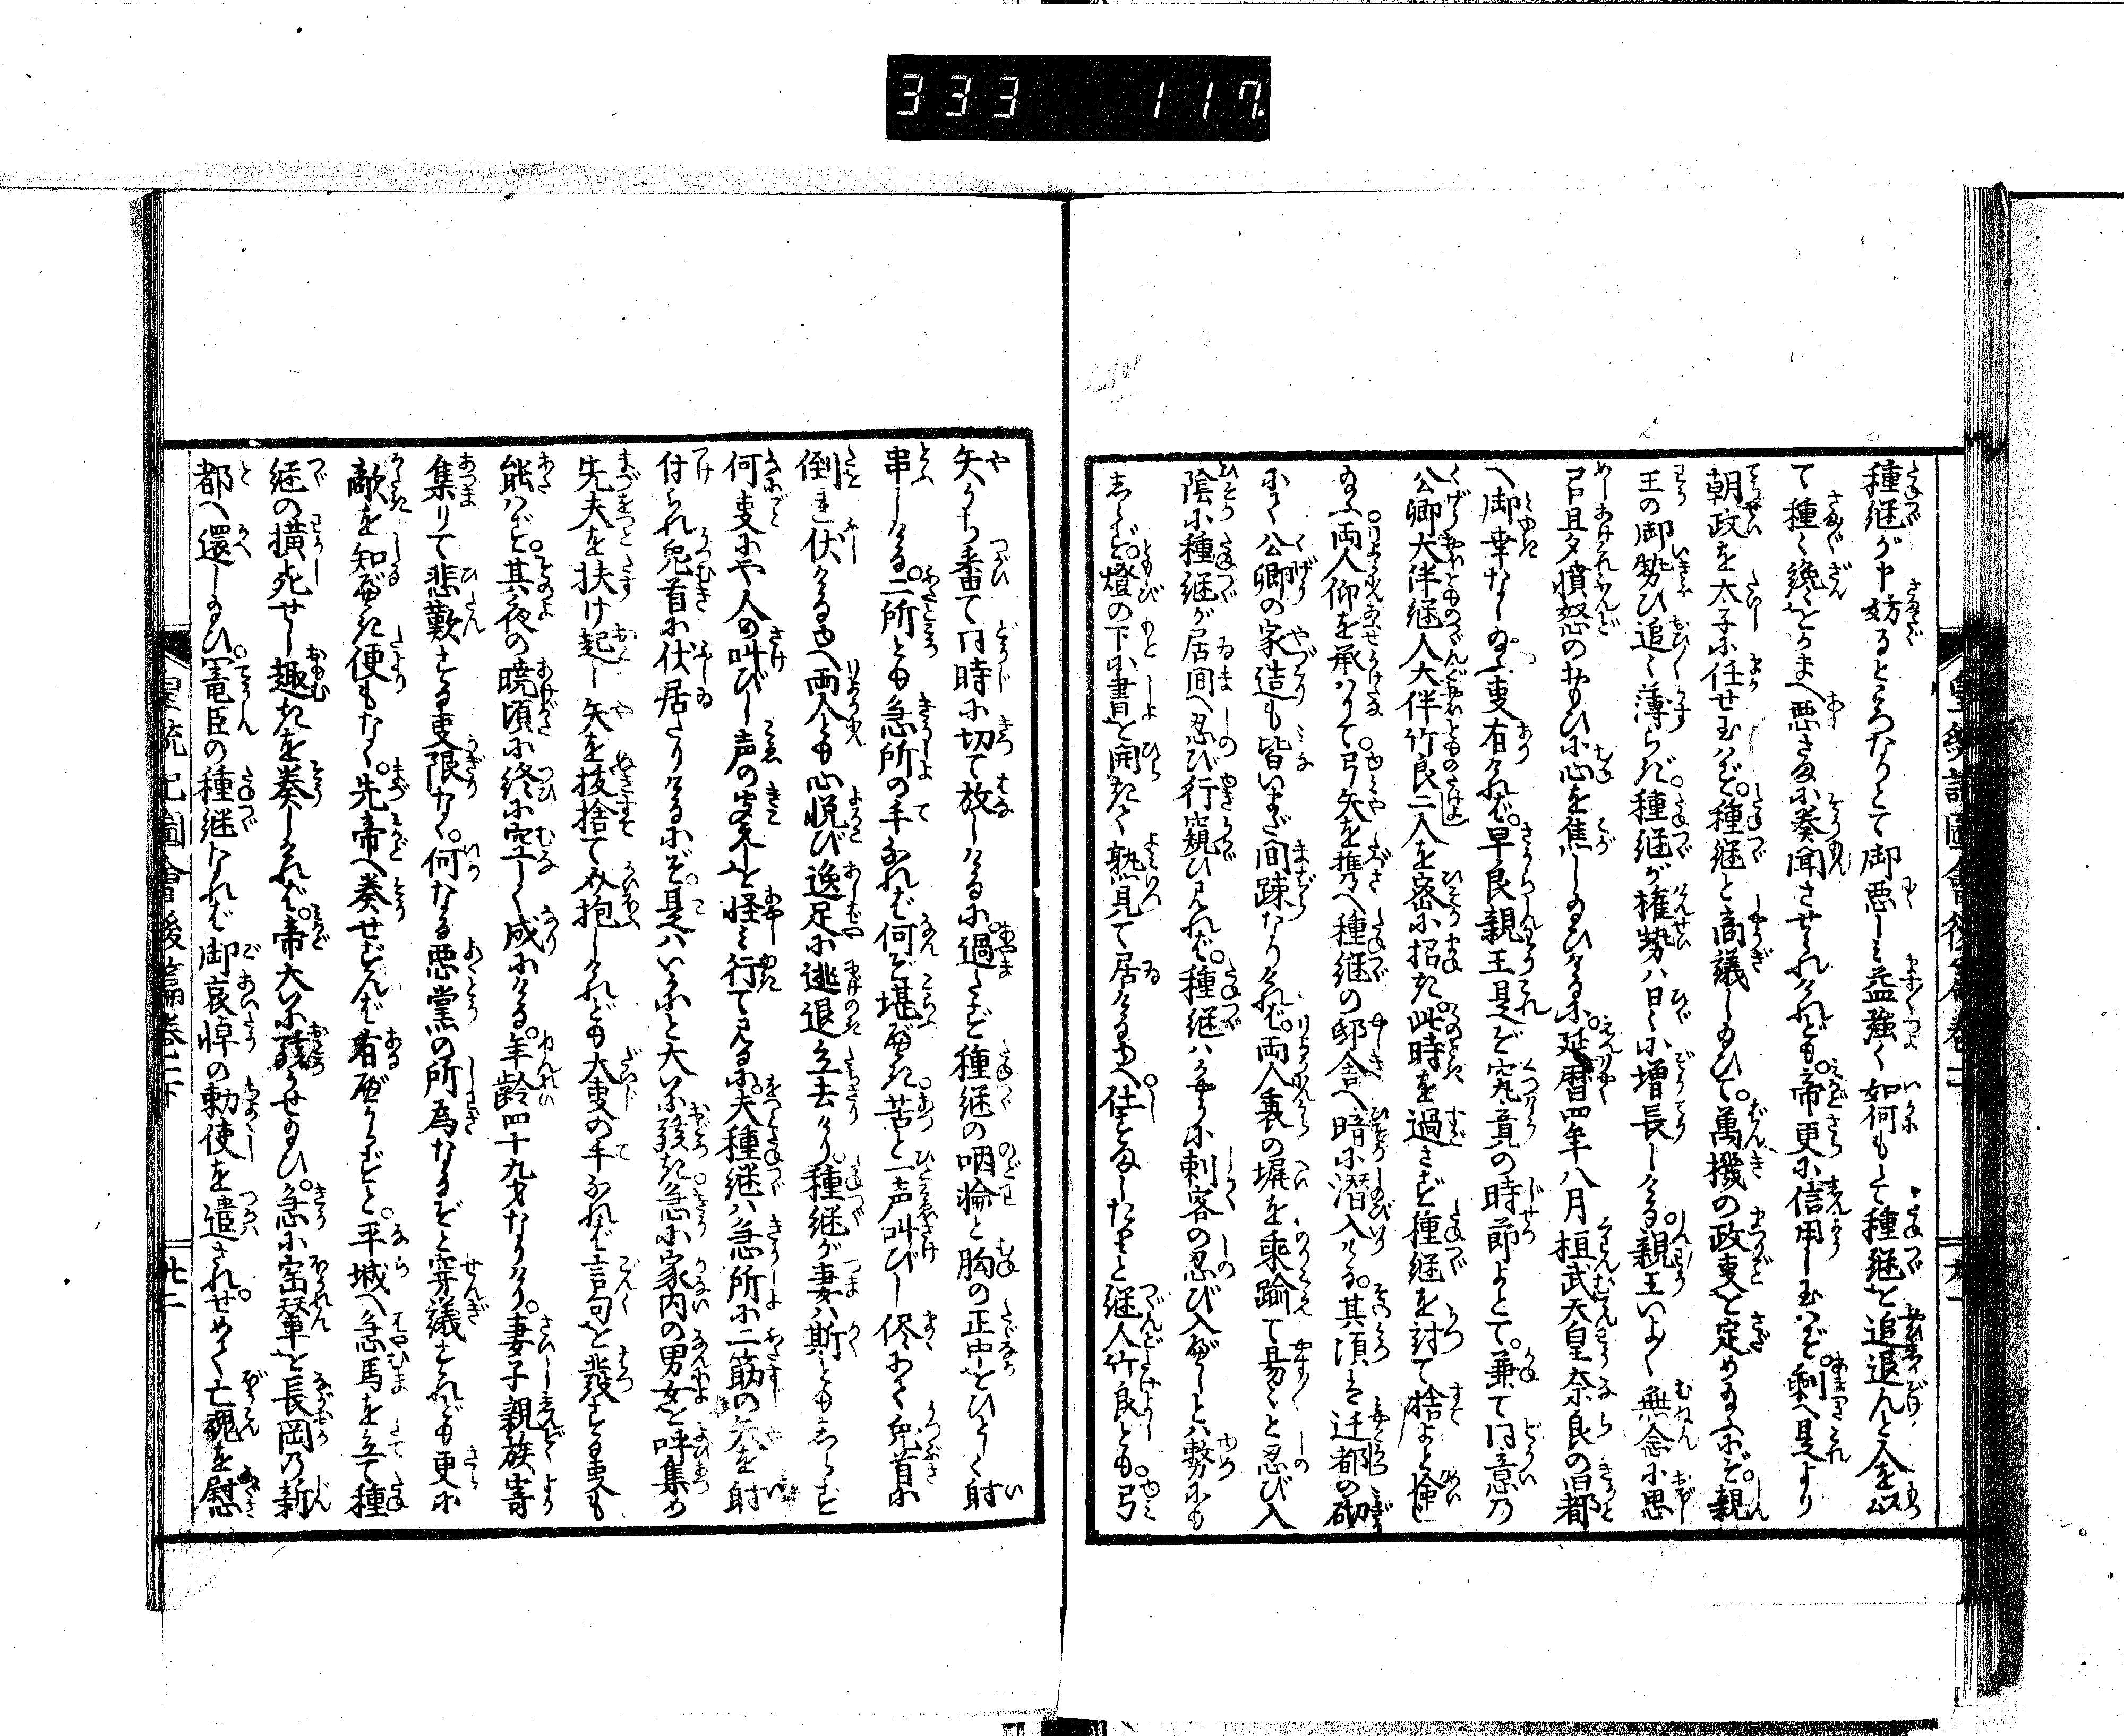 333 117
種継が申妨るところなりとて御悪しミ益強く如何もして種継を追退んと人を以
て種〻讒をかまへ悪さまに奏聞させられけれども帝更に信用し玉ハず剰へ是より
朝政を太子に任せ玉ハず種継と商議し給ひて萬機の政事を定め給ふにぞ親
王の御勢ひ追〻薄らぎ種継が権勢ハ日〻に増長しける親王いよ〳〵無念に思
召旦夕憤怒のおもひに心を焦し給ひけるに延暦四年八月桓武天皇奈良の旧都
へ御幸なし給ふ事有けれバ早良親王是ぞ究竟の時節よとて兼て同意の
公卿大伴継人大伴竹良二人を密に招き此時を過さず種継を討て捨よと命じ
給ふ両人仰を承ハりて弓矢を携へ種継の邸舎へ暗に潜入ける其頃ハ迁都の砌
にて公卿の家造も皆いまだ間踈なりけれバ両人裏の塀を乗踰て易〻と忍び入
陰に種継が居間へ忍び行窺ひ見れバ種継ハかゝる刺客の忍び入べしとハ努にも
しらず燈の下に書を開きて熟見て居ける故仕すましたりと継人竹良とも弓
矢うち番て同時に切て放しけるに過たず種継の咽喉と胸の正中をひとしく射
串しける二所とも急所の手なれバ何ぞ堪べき苦と一声叫びし侭にて俯首に
倒れ伏ける故両人とも心悦び逸足に逃退立去けり種継が妻ハ斯ともしらず
何事にや人の叫びし声の聞えしを怪ミ行て見るに夫種継ハ急所に二筋の矢を射
付られ俯首に伏居たりけるにぞ是ハいかにと大に駭き急に家内の男女を呼集め
先夫を扶け起し矢を抜捨てかい抱しけれども大事の手なれバ言句を発する事も
能ハず其夜の暁頃に終に空しく成にける年齢四十九才なりけり妻子親族寄
集りて悲歎する事限なく何なる悪黨の所為なるぞと穿議すれども更に
敵を知べき便もなく先帝へ奏せずんバ有べからずと平城へ急馬を立て種
継の横死せし趣きを奏しけれバ帝大に駭かせ給ひ急に宝輦を長岡乃新
都へ還し給ひ寵臣の種継なれバ御哀悼の勅使を遣されせめて亡魂を慰
皇統記圖會後篇巻二下
廿二